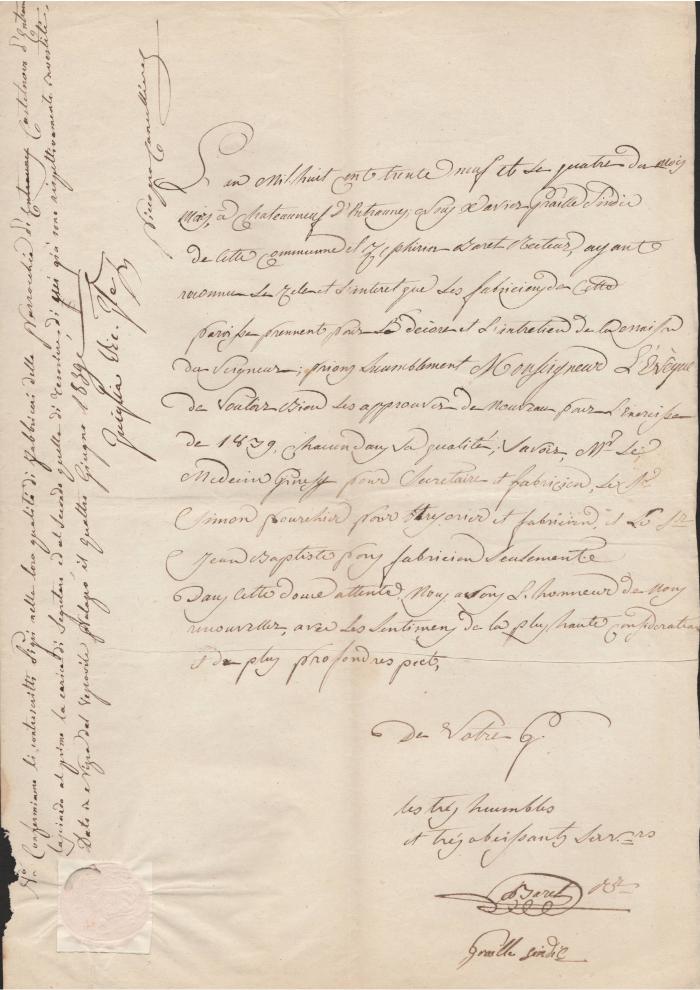 L'an Mil huit cent trente neuf et le quatre du mois
Mai, à Chateauneuf d'Entraunes, Nous Xavier Graille Sindic
de Cette Communne et Zéphirin Baret Recteur, ayant
reconnu Le Zele et L'interet que Les fabriciens de Cette
paroisse prennent pour Le décore et L'entretien de la maison
du Seigneur; prions humblement Monsigneur L'Evèque
de Vouloir Bien Les approuver de Nouveau pour L'exercisse
de 1839, chacun dans sa qualité; Savoir, Mr Le
Medecin Ginesy pour Secretaire et fabricien, Le Sr
Simon pourchier pour trésorier et fabricien, et Le Sr
Jean Baptiste pons fabricien Seulement
Dans Cette douce attente, Nous avons L'honneur de Nous
renouveller, avec Les Sentimens de la plus haute consideration
et du plus profond respect,
De Votre G.
les trés humbles
et trés obeissants Serv.rs
Baret Rr
Graille sindic
No. Confermiamo li controscritti Sigri nella loro qualità di fabbricai della Parrocchia di Entraunes Castelnovo d'Entraun
lasciando al primo la carica di Segretaro ed al secondo quella di Tesoriere, di cui già sono rispettivamente investiti.
Dato in Nizza dal Vescovile Palazzo il quattro Giugno 1839.
Vic. Gle